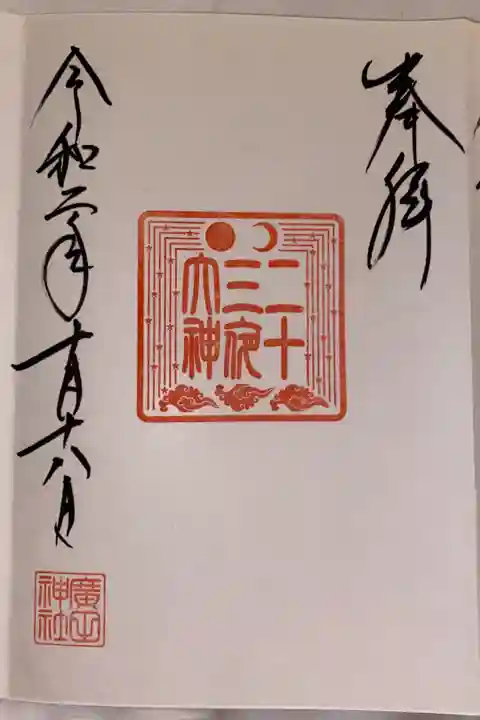 奉拝
二十
三夜
大神
令和二年十月十八日
廣田
神社